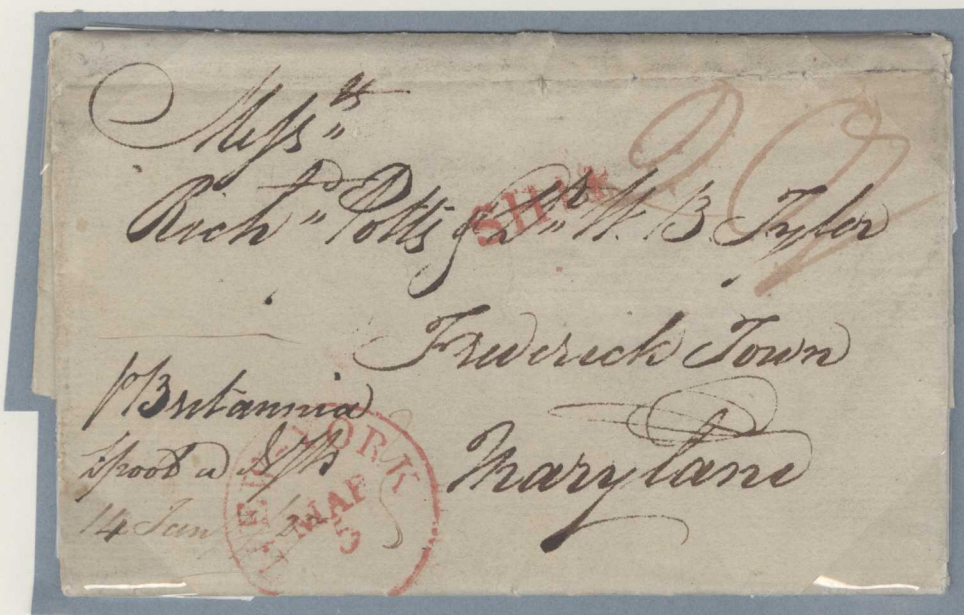 Messrs
Richd Potts & Dr W. B. Tyler
SHIP
22
Frederick Town
Maryland
p Britannia
14 Jany
NEW-YORK
MAR
5